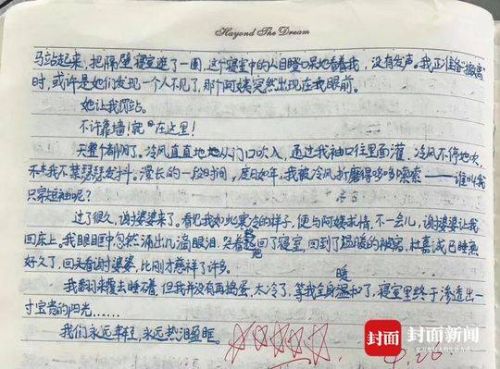 Hayond The Dream
马站起来，把隔壁寝室逛了一圈，这个寝室中的人目瞪口呆地看着我，没有发声。我正准备“撤离”
时，或许是她们发现一个人不见了，那个阿姨突然出现在我眼前。
她让我罚站。
不许靠墙！就在这里！
天整个都阴了。冷风直直地从门口吹入，通过我袖口往里面灌，冷风不停地吹，
不久我不禁瑟瑟发抖。漫长的一段时间，度日如年，我被冷风折磨得哆哆嗦嗦——谁叫我
只穿短袖呢？
过了很久，谢婆婆来了。看见我如此寒冷的样子，便与阿姨求情，不一会儿，谢婆婆让我
回床上。我眼眶中忽然涌出几滴眼泪，哭着跑回了寝室，回到了温暖的被窝，杜嘉已睡熟
好久了，回头看谢婆婆，比刚才慈祥了许多。
我翻来覆去睡不着，但我并没有再捣蛋，太冷了，等我全身温和了，寝室里终于渗透出一
寸宝贵的阳光……
我们永远年轻，永远热泪盈眶。
封面 封面新闻
4.26